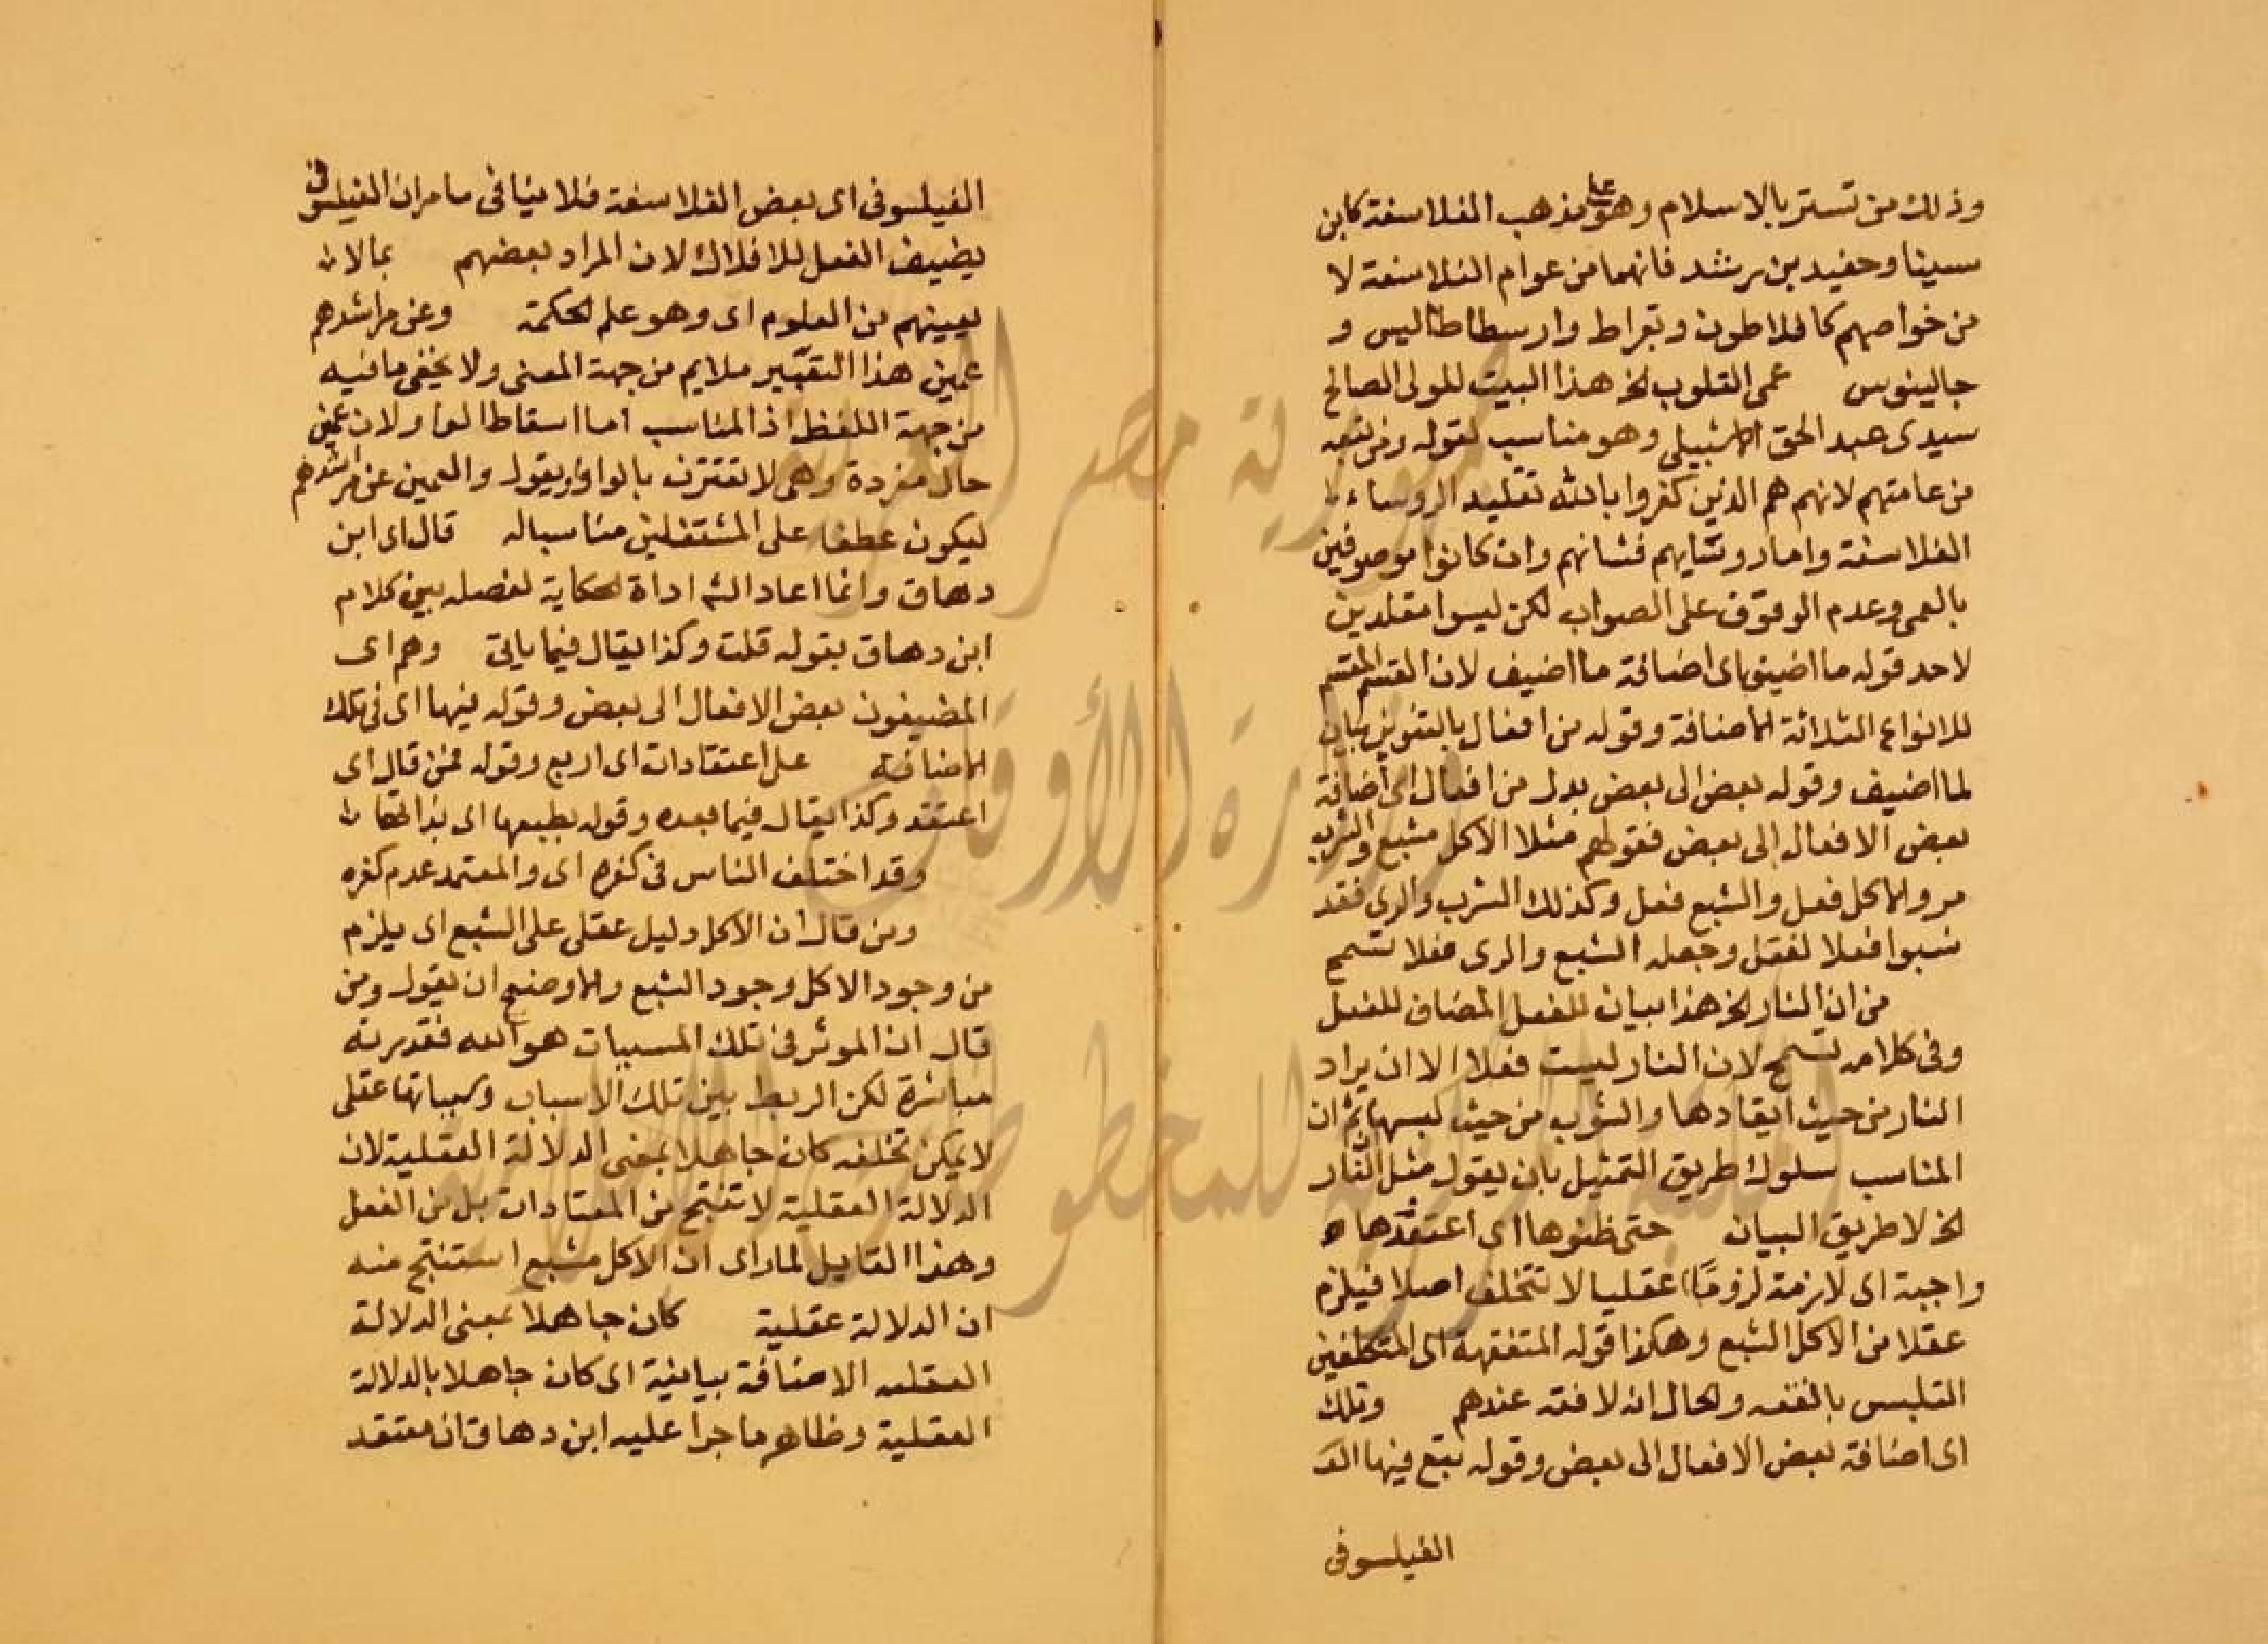 وذلك من تستر بالاسلام وهو على مذهب الفلاسفة كابن
سينا وحفيد بن رشد فانهما من عوام الفلاسفة لا
من خواصهم كافلاطون وبقراط وارسطاطاليس و
جالينوس عمى القلوب الخ هذا البيت للولى الصالح
سيدى عبد الحق الاشبيلى وهو مناسب لقوله ومن تبعه
من عامتهم لانهم هم الذين كفروا بالله تقليد الروساء
الفلاسفة واما روسايهم فشانهم وان كانوا موصوفين
بالعمى وعدم الوقوف على الصواب لكن ليسوا مقلدين
لاحد قوله ما اضيف اى اضافة ما اضيف لان القسم المقسم
للانواع الثلاثة الاضافة وقوله من افعال بالتنوين بيان
لما اضيف وقوله بعض الى بعض بدل من افعال اى اضافة
بعض الافعال الى بعض فقولهم مثلا الاكل مشبع والشرب
مرو والاكل فعل والشبع فعل وكذلك الشرب والرى فقد
نسبوا فعلا لفعل وجعله الشبع والرى فعلا تسمح
من ان النار الخ هذا بيان للفعل المضاف للفعل
وفى كلامه تسمح لان النار ليست فعلا الا ان يراد
النار من حيث ايقادها والثوب من حيث لبسها ثم ان
المناسب سلوك طريق التمثيل بان يقول مثل ان النار
الخ لا طريق البيان حتى ظنوها اى اعتقدها
واجبة اى لازمة لزوما عقليا لا تتخلف اصلا فيلزم
عقلا من الاكل الشبع وهكذا قوله المتفقهة اى المتكلفين
التلبس بالفقه والحال انه لا فقه عندهم وتلك
اى اضافة بعض الافعال الى بعض وقوله تبع فيها
الفيلسوفى
الفيلسوفى اى بعض الفلاسفة فلا ينافى ما مر ان الفيلسوفى
يضيف الفعل للافلاك لان المراد بعضهم بمالا
يعينهم من العلوم اى وهو علم الحكمة وعن مراشدهم
عمين هذا التعبير ملايم من جهة المعنى ولا يخفى ما فيه
من جهة اللفظ اذ المناسب اما اسقاط الواو لان عمين
حال مفردة وهى لا تقترن بالواو او يقول والعمين عن مراشدهم
ليكون عطفا على المشتغلين مناسبا له قال اى ابن
دهاق وانما اعاد الش اداة الحكاية لفصله بين كلام
ابن دهاق بقوله قلت وكذا يقال فيما ياتى وهم اى
المضيفون بعض الافعال الى بعض وقوله فيها اى فى تلك
الاضافة على اعتقادات اى اربع وقوله فمن قال اى
اعتقد وكذا يقال فيما بعده وقوله بطبعها اى بذاتها
وقد اختلف الناس فى كفره اى والمعتمد عدم كفره
ومن قال ان الاكل دليل عقلى على الشبع اى يلزم
من وجود الاكل وجود الشبع والاوضح ان يقول ومن
قال ان الموثر فى تلك المسببات هو الله فقدرته
مباشرة لكن الربط بين تلك الاسباب ومسبباتها عقلى
لا يمكن تخلفه كان جاهلا بمعنى الدلالة العقلية لان
الدلالة العقلية لا تنتج من المعتادات بل من العقل
وهذا القايل لما راى ان الاكل مشبع استنتج منه
ان الدلالة عقلية كان جاهلا بمعنى الدلالة
العقلية الاضافة بيانية اى كان جاهلا بالدلالة
العقلية وظاهر ما جرا عليه ابن دهاق ان معتقد